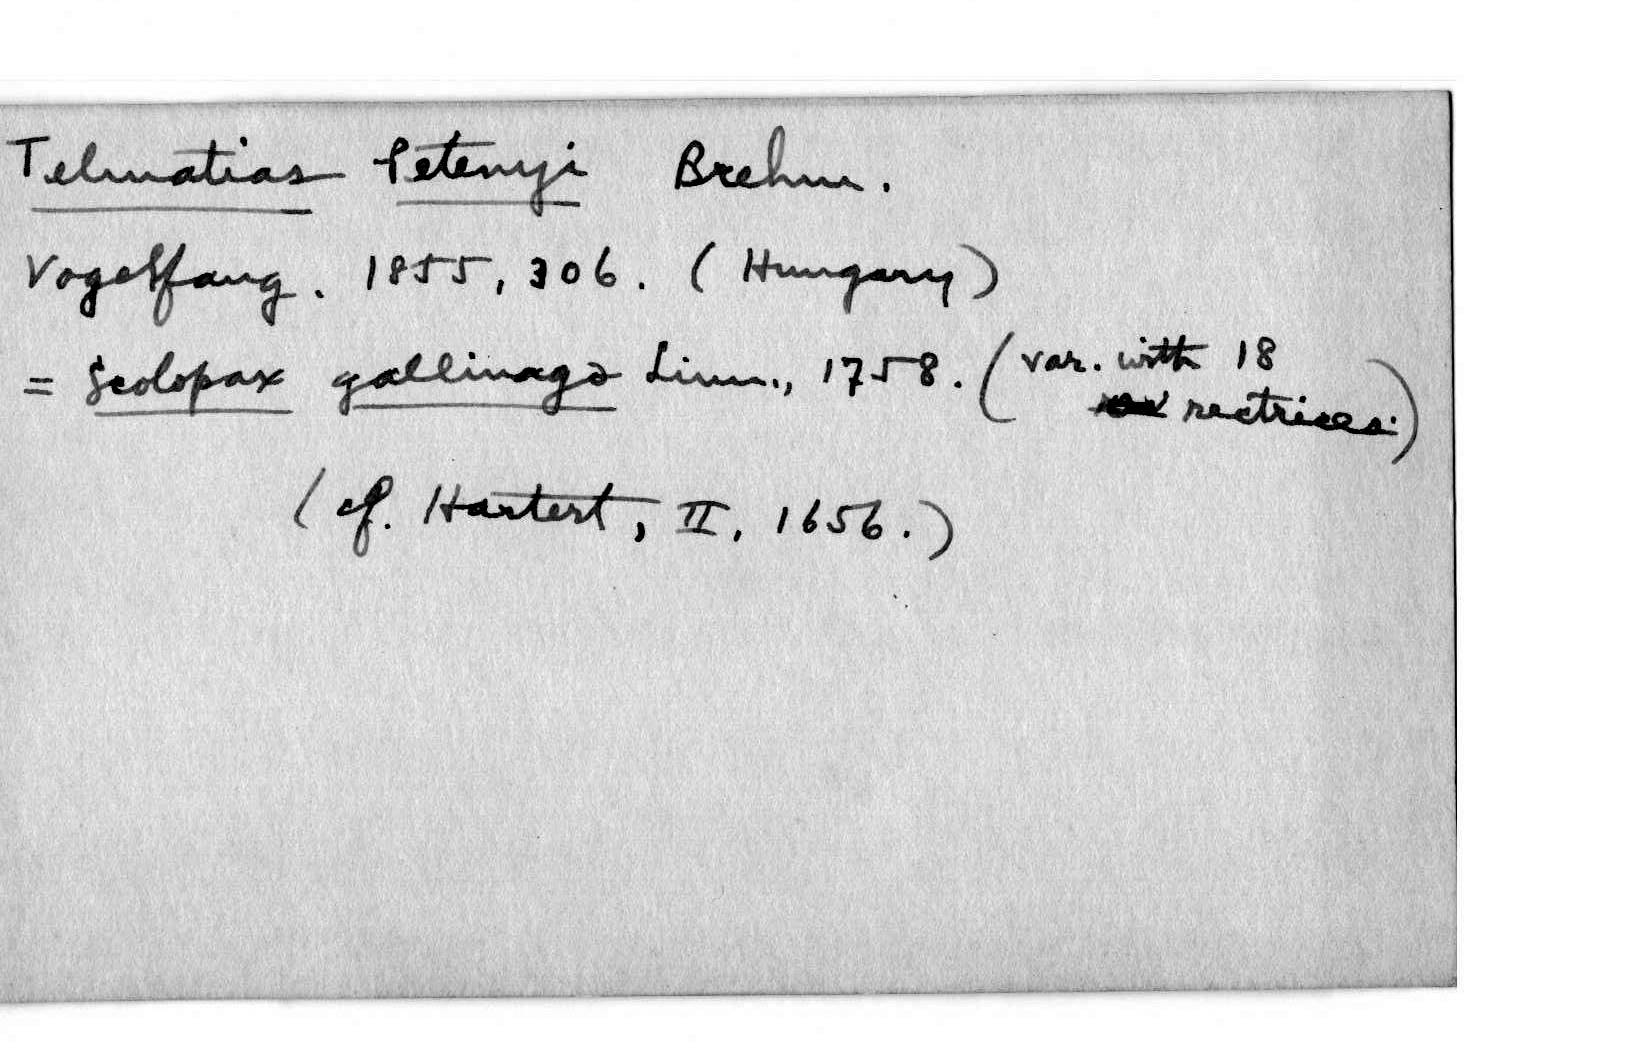 Telmatias Petenyi Brehm.
Vogelfang. 1855, 306. (Hungary)
= Scolopax gallinago Linn., 1758. (var. with 18
rectrices.)
(cf. Hartert, II, 1656.)